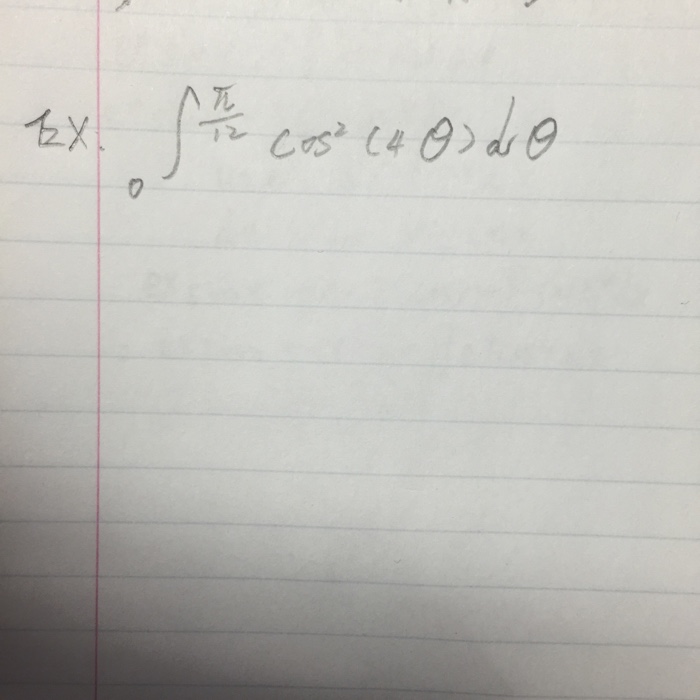 Ex. ∫₀^{π/12} cos² (4θ) dθ